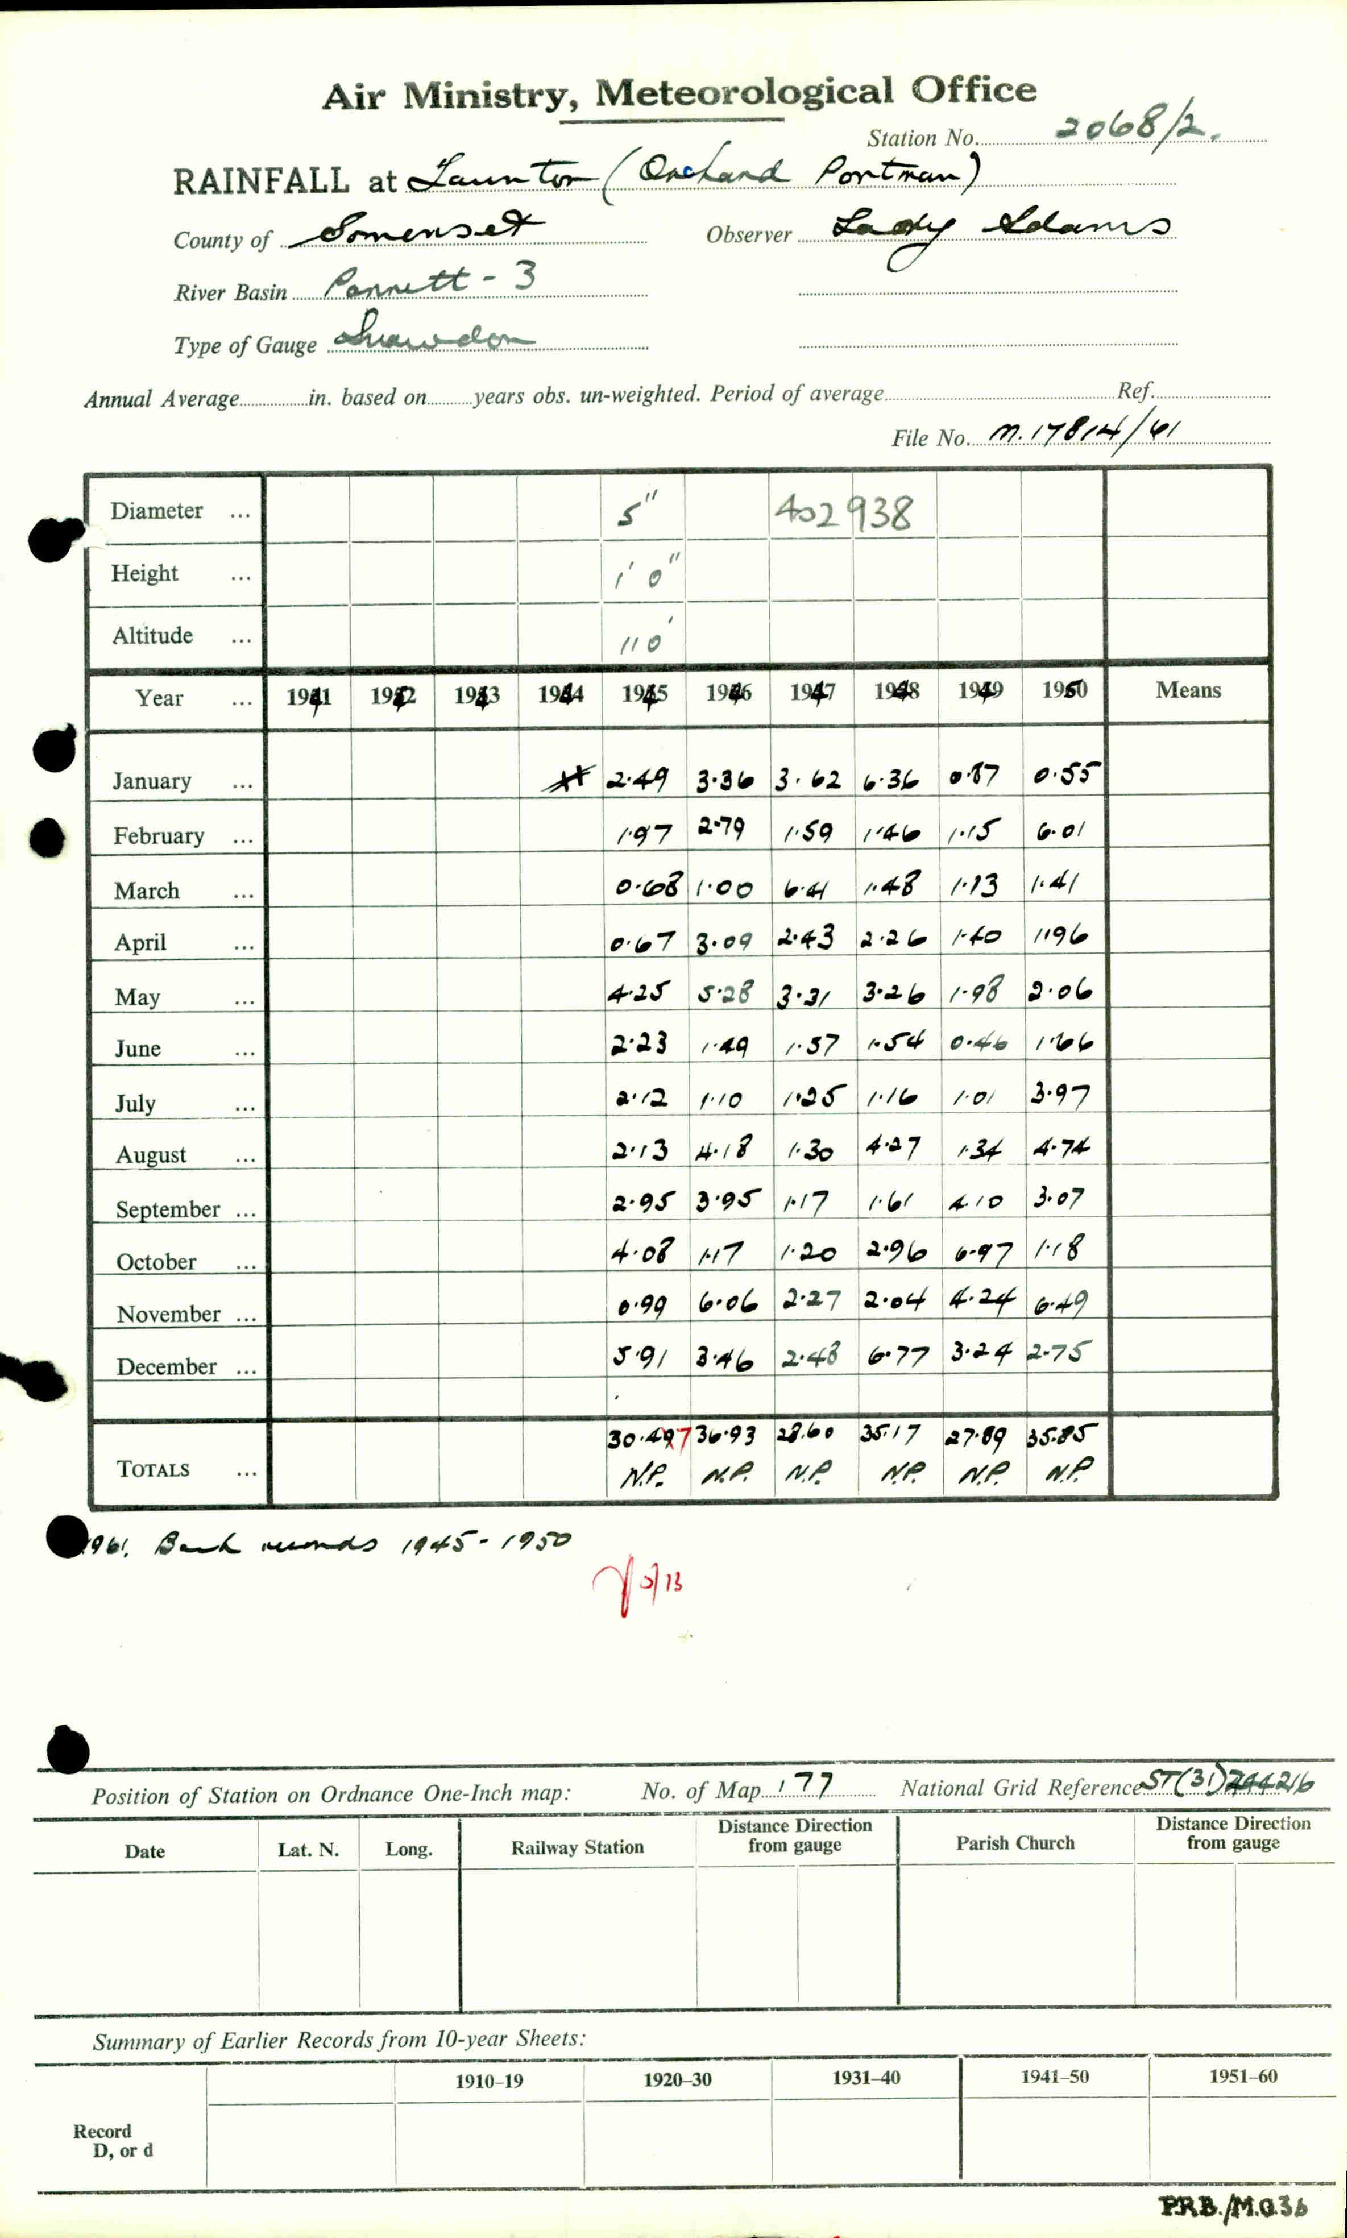 Air Ministry, Meteorological Office
Station No. 2068/2.
RAINFALL at Taunton (Orchard Portman)
County of Somerset Observer Lady Adams
River Basin Parrett - 3
Type of Gauge Snowdon
Annual Average in. based on years obs. un-weighted. Period of average Ref.
File No. M.17814/61
Diameter ... 5" 402938
Height ... 1' 0"
Altitude ... 110'
Year ... 1941 1942 1943 1944 1945 1946 1947 1948 1949 1950 Means
January ... 2.49 3.36 3.62 6.36 0.87 0.55
February ... 1.97 2.79 1.59 1.46 1.15 6.01
March ... 0.68 1.00 6.41 1.48 1.13 1.41
April ... 0.67 3.09 2.43 2.26 1.40 1.96
May ... 4.25 5.28 3.31 3.26 1.98 2.06
June ... 2.23 1.49 1.57 1.54 0.46 1.66
July ... 2.12 1.10 1.25 1.16 1.01 3.97
August ... 2.13 4.18 1.30 4.27 1.34 4.74
September ... 2.95 3.95 1.17 1.61 4.10 3.07
October ... 4.08 1.17 1.20 2.96 6.97 1.18
November ... 0.99 6.06 2.27 2.04 4.24 6.49
December ... 5.91 3.46 2.48 6.77 3.24 2.75
TOTALS ... 30.497 36.93 28.60 35.17 27.89 35.85
N.P. N.P. N.P. N.P. N.P. N.P.
1961. Back records 1945-1950
Position of Station on Ordnance One-Inch map: No. of Map 177 National Grid Reference ST(31)244216
Date Lat. N. Long. Railway Station Distance Direction from gauge Parish Church Distance Direction from gauge
Summary of Earlier Records from 10-year Sheets:
1910–19 1920–30 1931–40 1941–50 1951–60
Record
D, or d
P.R.B./M.O.36